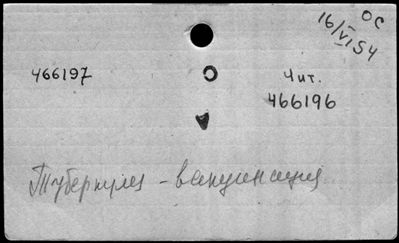 ОС
16/VI 54
466197
Чит.
466196
Туберкулез - вакцинация